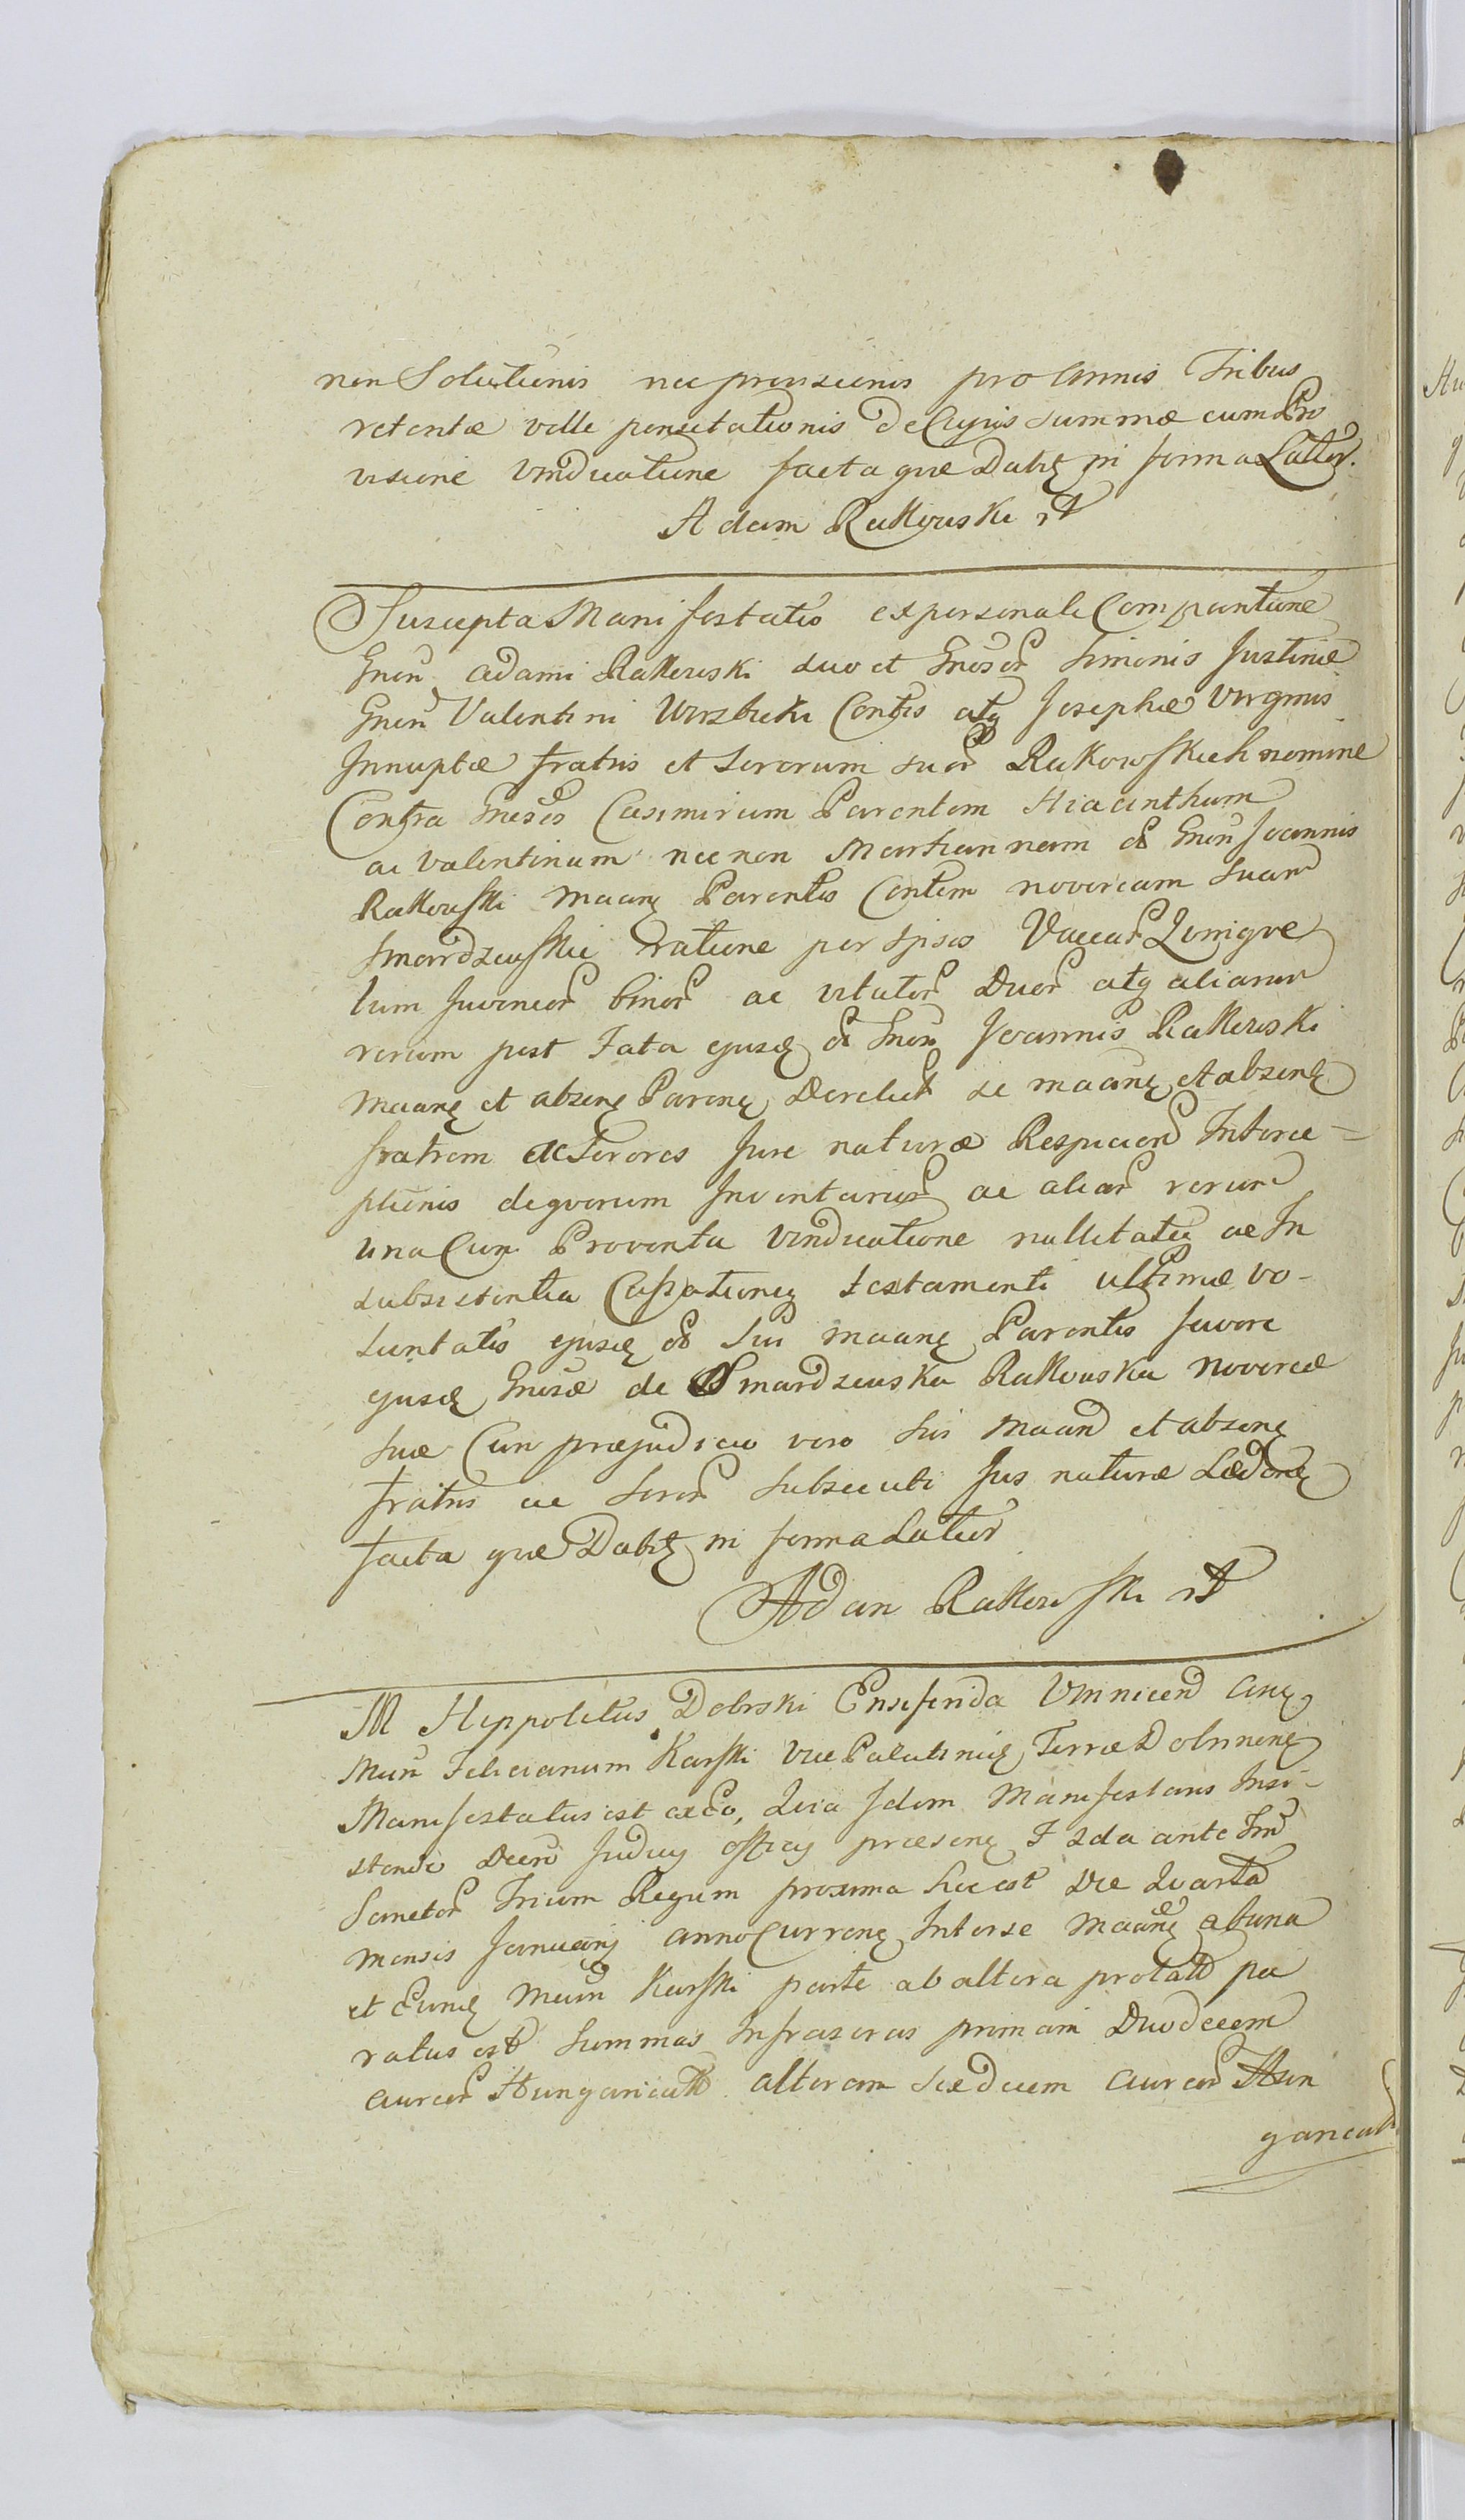 non Solutionis nec provisionis pro Annis Tribus
retentæ ville pensitationis de Cujus summæ cum Pro
visione vindicatione facta quæ Dabit in forma Latior.
Adam Rakowski
Suscepta Manifestatio ex personali Comparitione
Gnen Adami Rakowski suo et Gnosor Simonis Justinæ
Gnen Valentini Wirzbicki Contis atq Josephæ Virginis
Innuptæ fratris et Sororum suor Rakowskich nomine
Contra Gnosos Casimirum Parentem Hiacinthum
ac Valentinum nec non Mariannam ol Gnen Joannis
Rakowski Maanę Parentis Contem novercam Suam
Smardzewskie ratione per Ipsos Vaccar
tum Juvencor binor ac vitulor Duor atq aliarum
rerum post Fata ejusd ol Gnen Joannis Rakowski
Maanę et absenę Parenę Derelict se maanę et absenę
fratrem ac Sorores Jure naturæ Respicien Interce=
ptionis de quorum Inventarior ac aliar rerum
una Cum Proventu vindicatione nullitatis ac In
subsistentia Cassationis testamenti ultimæ vo-
luntatis ejusd ol Sui maanę Parentis favore
ejusd Gnosæ de Smardzewska Rakowska Novercæ
suæ Cum præjudicio vero Sui Maan et absenę
fratris ac Soror Subsecuti Jus naturæ Lædenę
facta quæ Dabit in forma Latior
Adam Rakowski
M Hippolitus Dobrski Ensiferida
Mun Felicianum Karski Vice Palatinid Terræ Dobrinenę
Manifestatus est ex eo, Quia Idem Manifestans Insi-
stendo Decreto Judicij officij præsenę F 2da ante Fm
Sanctor Trium Regum proxima hic est Die Quarta
mensis Januarij anno Currenę Inter se Maanę ab una
et Eund Mun Karski parte ab altera prolato pa
ratus est Summas Infrascras primam Duodecem
aureor Hungaricall alteram sædecem aureor Hun
garicall